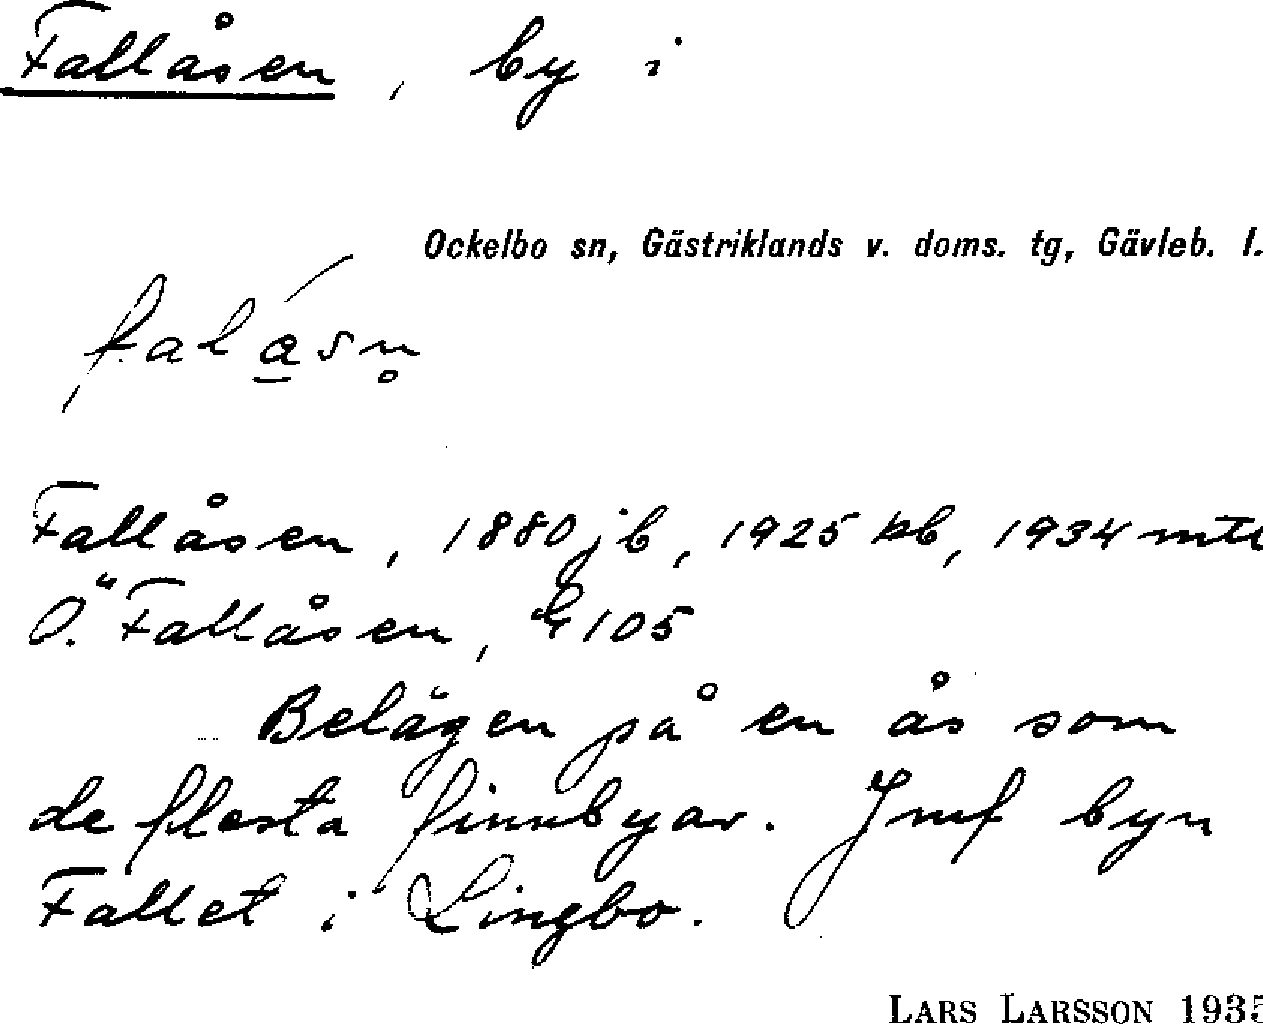 Fallåsen, by i
Ockelbo sn, Gästriklands v. doms. tg, Gävleb. l.
Fallåsen, 1880 jb, 1925 kb, 1934 mtl
Ö. Fallåsen, 105
Belägen på en ås som
de flesta finnbyar. Jmf byn
Fallet i Lingbo.
LARS LARSSON 1935